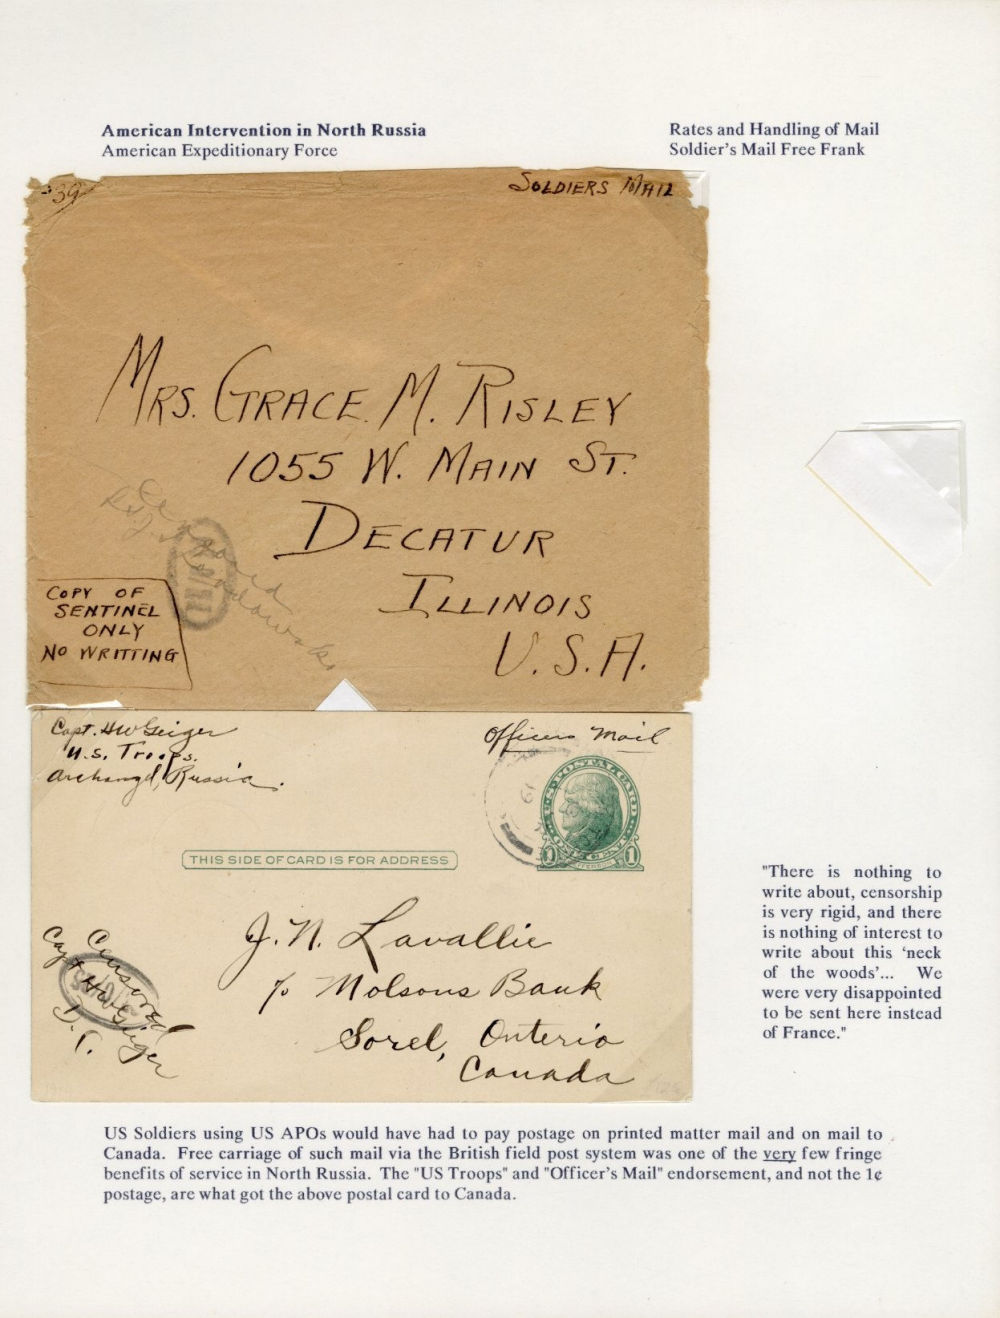 American Intervention in North Russia
American Expeditionary Force
Rates and Handling of Mail
Soldier's Mail Free Frank
39
SOLDIERS MAIL
MRS. GRACE M. RISLEY
1055 W. MAIN ST.
DECATUR
ILLINOIS
U.S.A.
Censored
COPY OF
SENTINEL
ONLY
NO WRITTING
Capt. HW Geiger
U.S. Troops.
Archangel, Russia.
Officers Mail
U.S. POSTAL CARD
1 ONE CENT 1
THIS SIDE OF CARD IS FOR ADDRESS
J. N. Lavallie
c/o Molsons Bank
Sorel, Onterio
Canada
Censored
Capt HW Geiger
"There is nothing to
write about, censorship
is very rigid, and there
is nothing of interest to
write about this 'neck
of the woods'... We
were very disappointed
to be sent here instead
of France."
US Soldiers using US APOs would have had to pay postage on printed matter mail and on mail to
Canada. Free carriage of such mail via the British field post system was one of the very few fringe
benefits of service in North Russia. The "US Troops" and "Officer's Mail" endorsement, and not the 1¢
postage, are what got the above postal card to Canada.